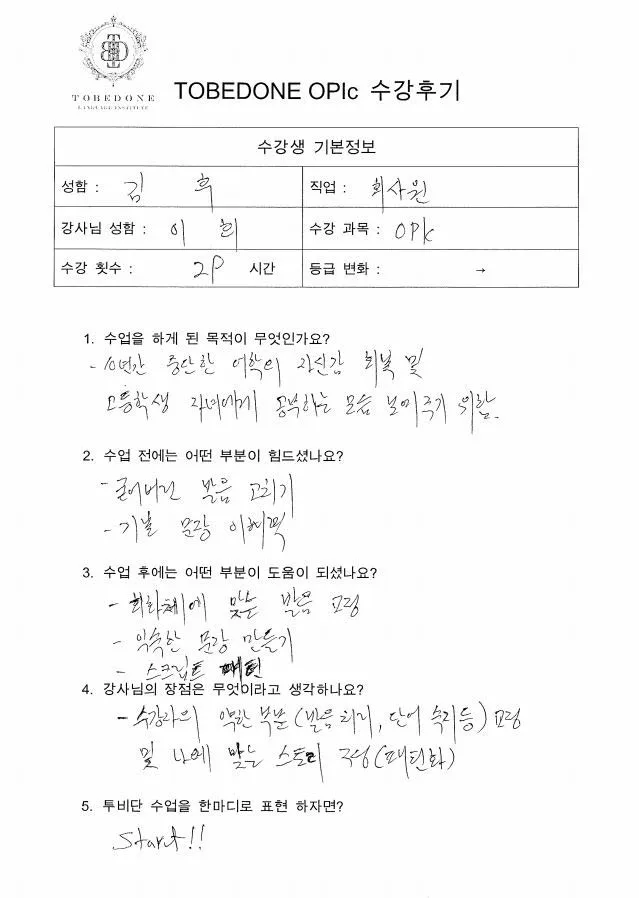 TOBEDONE
LANGUAGE INSTITUTE
TOBEDONE OPIc 수강후기
수강생 기본정보
성함 : 김 후 직업 : 회사원
강사님 성함 : 이 희 수강 과목 : OPIc
수강 횟수 : 시간 등급 변화 : →
1. 수업을 하게 된 목적이 무엇인가요?
- 10년간 중단한 어학의 자신감 회복 및
고등학생 자녀에게 공부하는 모습 보여주기 위함.
2. 수업 전에는 어떤 부분이 힘드셨나요?
- 굳어버린 발음 고치기
- 기본 문장 이해력
3. 수업 후에는 어떤 부분이 도움이 되셨나요?
- 회화체에 맞는 발음 교정
- 익숙한 문장 만들기
- 스크립트 패턴
4. 강사님의 장점은 무엇이라고 생각하나요?
- 수강자의 약한 부분(발음 처리, 단어 숙지등) 교정
및 나에 맞는 스토리 구성(패턴화)
5. 투비단 수업을 한마디로 표현 하자면?
Start!!